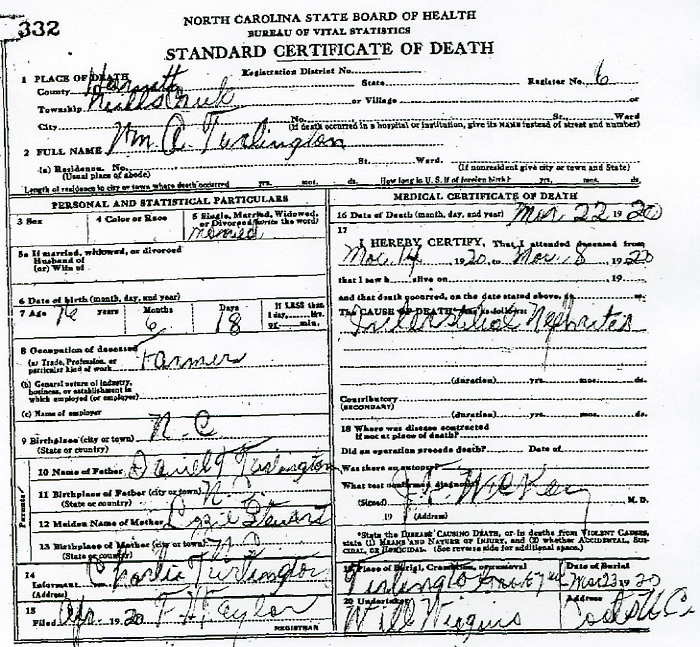 332
NORTH CAROLINA STATE BOARD OF HEALTH
BUREAU OF VITAL STATISTICS
STANDARD CERTIFICATE OF DEATH
1 PLACE OF DEATH Registration District No. Register No. 6
County Harnett State
Township Neills Creek or Village or
City No. St. Ward
(If death occurred in a hospital or institution, give its NAME instead of street and number)
2 FULL NAME Wm A. Turlington
(a) Residence. No. St. Ward.
(Usual place of abode) (If nonresident give city or town and State)
Length of residence in city or town where death occurred yrs. mos. ds. How long in U. S. if of foreign birth? yrs. mos. ds.
PERSONAL AND STATISTICAL PARTICULARS
3 Sex 4 Color or Race 5 Single, Married, Widowed, or Divorced (write the word)
Married
5a If married, widowed, or divorced
Husband of
(or) Wife of
6 Date of birth (month, day, and year)
7 Age 76 years Months 6 Days 18 If LESS than 1 day, Hrs. min.
8 Occupation of deceased
(a) Trade, Profession, or particular kind of work Farmer
(b) General nature of industry, business, or establishment in which employed (or employer)
(c) Name of employer
9 Birthplace (city or town) N. C
(State or country)
Parents
10 Name of Father Daniel Turlington
11 Birthplace of Father (city or town) N. C.
(State or country)
12 Maiden Name of Mother Stewart
13 Birthplace of Mother (city or town) N C
(State or country)
14
Informant Charlie Turlington
(Address)
15
Filed Apr. 1920 F H Taylor
REGISTRAR
MEDICAL CERTIFICATE OF DEATH
16 Date of Death (month, day, and year) Mar 22 1920
17
I HEREBY CERTIFY, That I attended deceased from
Mar. 14, 1920 to Mar 8 1920
that I saw h alive on 19
and that death occurred, on the date stated above, at m.
The CAUSE OF DEATH* was as follows:
Interstitial Nephritis
(duration) yrs. mos. ds.
Contributory
(SECONDARY)
(duration) yrs. mos. ds.
18 Where was disease contracted
if not at place of death?
Did an operation precede death? Date of
Was there an autopsy?
What test confirmed diagnosis?
(Signed) M. D.
19 (Address)
*State the DISEASE CAUSING DEATH, or in deaths from VIOLENT CAUSES, state (1) MEANS AND NATURE OF INJURY, and (2) whether ACCIDENTAL, SUICIDAL, or HOMICIDAL. (See reverse side for additional space.)
19 Place of Burial, Cremation, or removal Date of Burial
Turlington Mar 23 1920
20 Undertaker Address
Will Wiggins Coats N C.